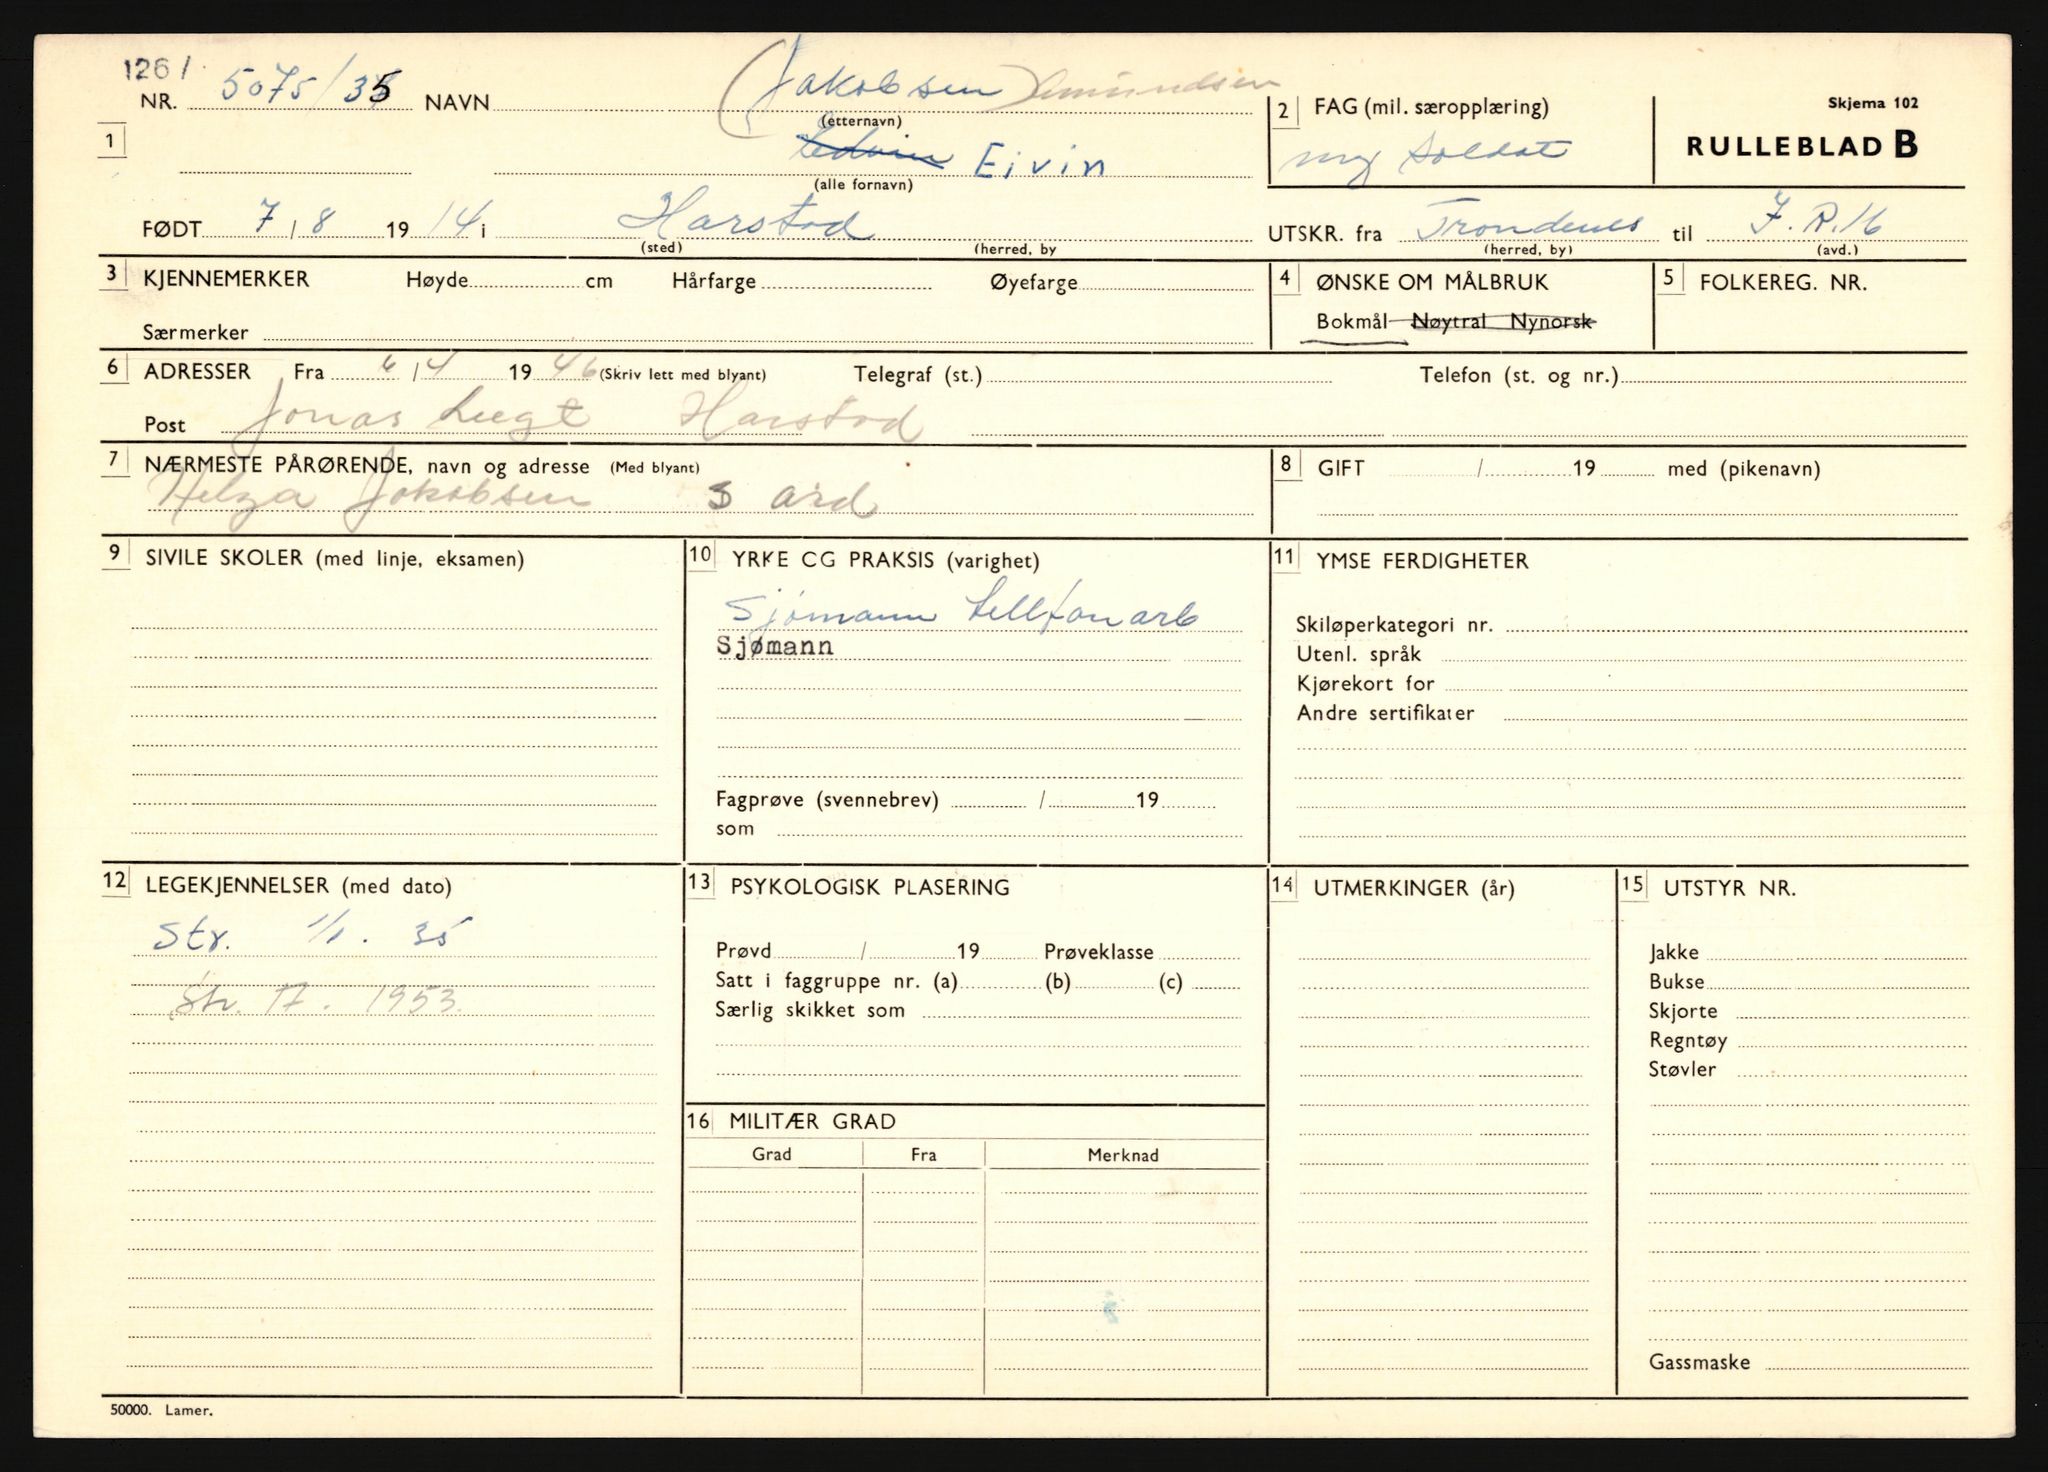 1261
NR. 5075/35 NAVN (Jakobsen) Amundsen
(etternavn)
1
Edvin Eivin
(alle fornavn)
2 FAG (mil. særopplæring)
Soldat
Skjema 102
RULLEBLAD B
FØDT 7/8 1914 i Harstad
(sted) (herred, by
UTSKR. fra Trondenes til I.R.16
(herred, by) (avd.)
3 KJENNEMERKER Høyde cm Hårfarge Øyefarge
Særmerker
4 ØNSKE OM MÅLBRUK
Bokmål Nøytral Nynorsk
5 FOLKEREG. NR.
6 ADRESSER Fra 6/4 1946 (Skriv lett med blyant) Telegraf (st.) Telefon (st. og nr.)
Post Jonas Harstad
7 NÆRMESTE PÅRØRENDE, navn og adresse (Med blyant)
Helga Jakobsen S ard
8 GIFT / 19 med (pikenavn)
9 SIVILE SKOLER (med linje, eksamen)
10 YRKE CG PRAKSIS (varighet)
Sjømann tellfonarb
Sjømann
Fagprøve (svennebrev) / 19
som
11 YMSE FERDIGHETER
Skiløperkategori nr.
Utenl. språk
Kjørekort for
Andre sertifikater
12 LEGEKJENNELSER (med dato)
Str. 1/1. 35
Str. 17. 1953.
13 PSYKOLOGISK PLASERING
Prøvd / 19 Prøveklasse
Satt i faggruppe nr. (a) (b) (c)
Særlig skikket som
14 UTMERKINGER (år)
15 UTSTYR NR.
Jakke
Bukse
Skjorte
Regntøy
Støvler
Gassmaske
16 MILITÆR GRAD
Grad Fra Merknad
50000. Lamer.